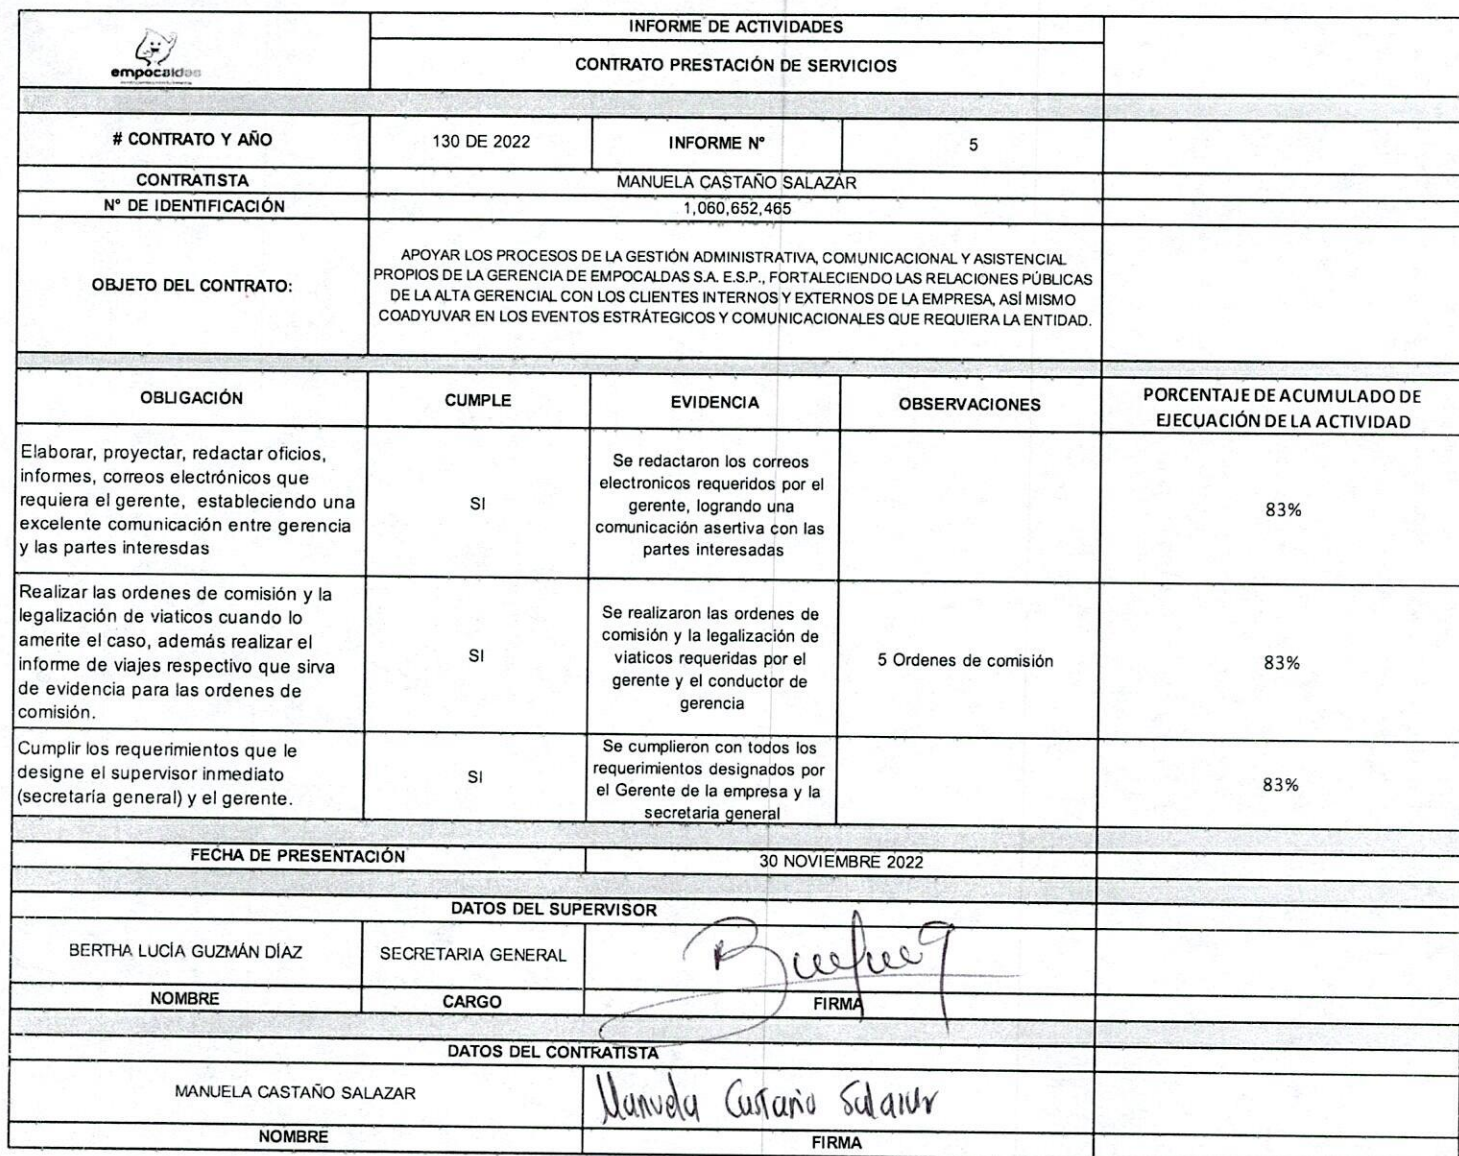 INFORME DE ACTIVIDADES
empocaldas
CONTRATO PRESTACIÓN DE SERVICIOS
# CONTRATO Y AÑO 130 DE 2022 INFORME N° 5
CONTRATISTA MANUELA CASTAÑO SALAZAR
N° DE IDENTIFICACIÓN 1,060,652,465
OBJETO DEL CONTRATO:
APOYAR LOS PROCESOS DE LA GESTIÓN ADMINISTRATIVA, COMUNICACIONAL Y ASISTENCIAL
PROPIOS DE LA GERENCIA DE EMPOCALDAS S.A. E.S.P., FORTALECIENDO LAS RELACIONES PÚBLICAS
DE LA ALTA GERENCIAL CON LOS CLIENTES INTERNOS Y EXTERNOS DE LA EMPRESA, ASÍ MISMO
COADYUVAR EN LOS EVENTOS ESTRÁTEGICOS Y COMUNICACIONALES QUE REQUIERA LA ENTIDAD.
OBLIGACIÓN CUMPLE EVIDENCIA OBSERVACIONES
PORCENTAJE DE ACUMULADO DE
EJECUACIÓN DE LA ACTIVIDAD
Elaborar, proyectar, redactar oficios,
informes, correos electrónicos que
requiera el gerente, estableciendo una
excelente comunicación entre gerencia
y las partes interesdas
SI
Se redactaron los correos
electronicos requeridos por el
gerente, logrando una
comunicación asertiva con las
partes interesadas
83%
Realizar las ordenes de comisión y la
legalización de viaticos cuando lo
amerite el caso, además realizar el
informe de viajes respectivo que sirva
de evidencia para las ordenes de
comisión.
SI
Se realizaron las ordenes de
comisión y la legalización de
viaticos requeridas por el
gerente y el conductor de
gerencia
5 Ordenes de comisión
83%
Cumplir los requerimientos que le
designe el supervisor inmediato
(secretaría general) y el gerente.
SI
Se cumplieron con todos los
requerimientos designados por
el Gerente de la empresa y la
secretaria general
83%
FECHA DE PRESENTACIÓN 30 NOVIEMBRE 2022
DATOS DEL SUPERVISOR
BERTHA LUCÍA GUZMÁN DÍAZ SECRETARIA GENERAL
NOMBRE CARGO FIRMA
DATOS DEL CONTRATISTA
MANUELA CASTAÑO SALAZAR Manuela Castaño Salazar
NOMBRE FIRMA